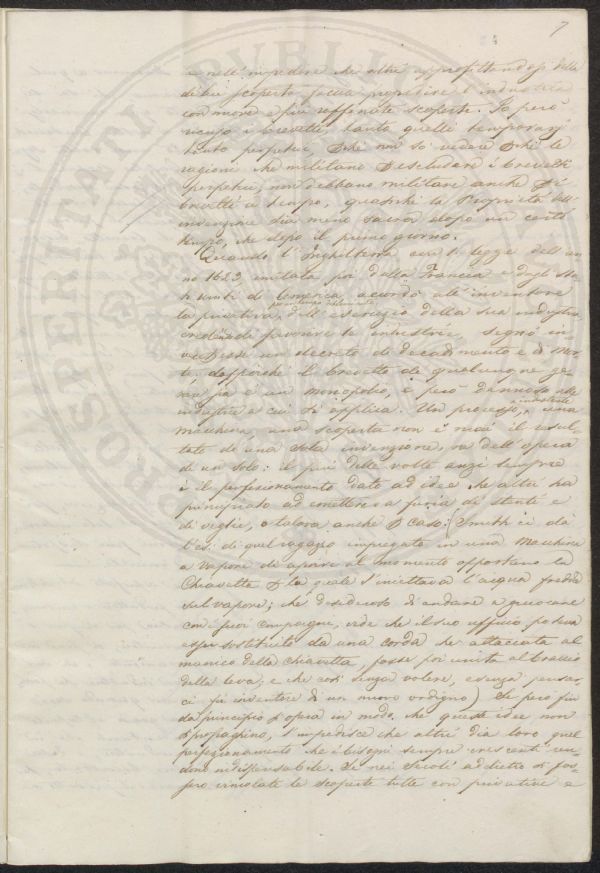 7
e nell'impedire che altri approfittando della
di lui scoperta, faccia progredire l'industria
con nuove e più raffinate scoperte. Io però
ricuso i brevetti, tanto quelli temporarj
tanto perpetui, che non so vedere che le
ragioni che militano ad escludere i brevetti
perpetui, non debbano militare anche pei
brevetti a tempo, quasiché la Proprietà dell'
invenzione sia meno sacra dopo un certo
tempo, che dopo il primo giorno.
Quando l'Inghilterra con la legge dell'an
no 1623, imitata poi dalla Francia e dagli Sta
ti uniti di America accordò all'inventore
la privativa, dell'esercizio della sua industria
credendo favorire le industrie, segnò in
vece un decreto di decadimento e di mor
te, dapoiché il brevetto di qualunque ge
nere sia è un monopolio, e però dannoso alle
industrie a cui si applica. Un processo, una
macchina una scoperta non è mai il risul
tato di una sola invenzione, va dell'opera
di un solo: il più delle volte anzi sempre
è il perfezionamento dato ad idee che altri ha
principiato ad emettere a furia di stenti e
di veglie, o talora anche a caso. (Smith ci dà
l'es. di quel ragazzo impiegato in una Macchina
a Vapore di aprire al momento opportuno la
Chiavetta la quale s'iniettava l'acqua fredda
sul vapore; che desideroso di andare a giuocare
con i suoi compagni, vide che il suo ufficio poteva
esser sostituito da una corda che attaccata al
manico della chiavetta, fosse poi unita al braccio
della leva, e che così senza volere, e senza pensar
ci fu inventore di un nuovo ordigno) Se però fin
da principio si opera in modo, che queste idee non
si propaghino, s'impedisce che altri dia loro quel
perfezionamento che i bisogni sempre crescenti ren
dono indispensabile. Se nei secoli addietro si fos
sero vincolate le scoperte tutte con privative e
PROSPERITATI PVBLI